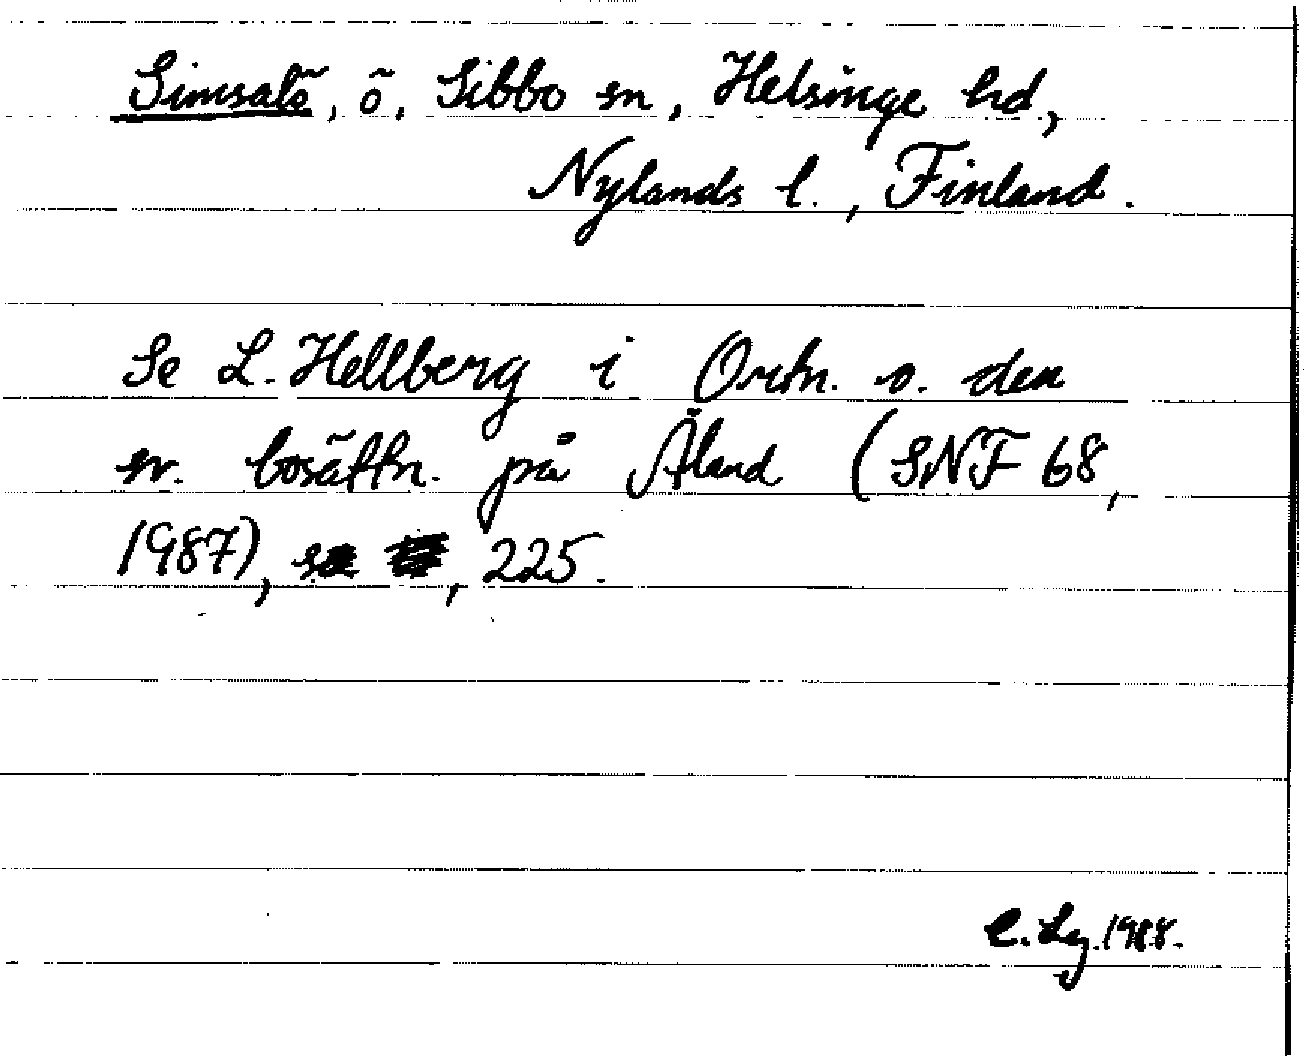 Simsalö, ö, Sibbo sn, Helsinge hd,
Nylands l., Finland.
Se L. Hellberg i Ortn. o. den
sv. bosättn. på Åland (SNF 68,
1987), , 225.
C. Lg. 1988.